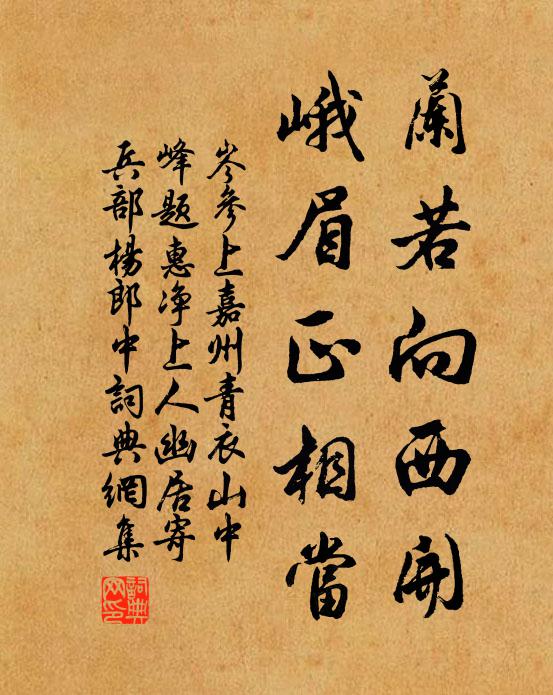 蘭若向西開
峨眉正相當
岑參上嘉州青衣山中
峰題惠净上人幽居寄
兵部楊郎中詞典網集
詞典網印